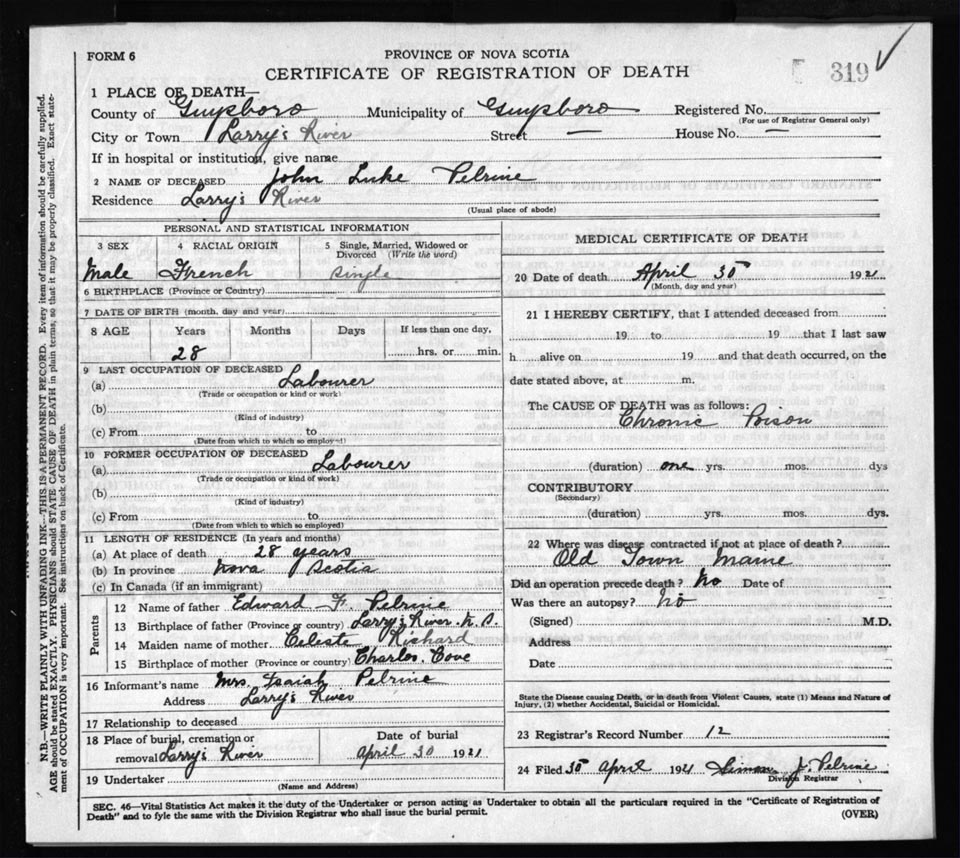 FORM 6
PROVINCE OF NOVA SCOTIA
CERTIFICATE OF REGISTRATION OF DEATH
319
1 PLACE OF DEATH—
County of Guysboro Municipality of Guysboro Registered No.
(For use of Registrar General only)
City or Town Larry's River Street — House No. —
If in hospital or institution, give name
2 NAME OF DECEASED John Luke Pelrine
Residence Larry's River
(Usual place of abode)
PERSONAL AND STATISTICAL INFORMATION
3 SEX 4 RACIAL ORIGIN 5 Single, Married, Widowed or Divorced (Write the word)
Male French Single
6 BIRTHPLACE (Province or Country)
7 DATE OF BIRTH (month, day and year)
8 AGE Years Months Days If less than one day,
28 hrs. or min.
9 LAST OCCUPATION OF DECEASED
(a) Labourer
(Trade or occupation or kind or work)
(b)
(Kind of industry)
(c) From to
(Date from which to which so employed)
10 FORMER OCCUPATION OF DECEASED
(a) Labourer
(Trade or occupation or kind of work)
(b)
(Kind of industry)
(c) From to
(Date from which to which so employed)
11 LENGTH OF RESIDENCE (In years and months)
(a) At place of death 28 years
(b) In province Nova Scotia
(c) In Canada (if an immigrant)
Parents
12 Name of father Edward F. Pelrine
13 Birthplace of father (Province or country) Larry's River. N. S.
14 Maiden name of mother Celeste Richard
15 Birthplace of mother (Province or country) Charlos. Cove
16 Informant's name Mrs. Isaiah Pelrine
Address Larry's River
17 Relationship to deceased
18 Place of burial, cremation or removal Larry's River
Date of burial
April 30 1921
19 Undertaker
(Name and Address)
MEDICAL CERTIFICATE OF DEATH
20 Date of death April 30 1921
(Month, day and year)
21 I HEREBY CERTIFY, that I attended deceased from
19 to 19 that I last saw
h alive on 19 and that death occurred, on the
date stated above, at m.
The CAUSE OF DEATH was as follows:
Chronic Poison
(duration) one yrs. mos. dys
CONTRIBUTORY
(Secondary)
(duration) yrs. mos. dys.
22 Where was disease contracted if not at place of death?
Old Town Maine
Did an operation precede death? No Date of
Was there an autopsy? No
(Signed) M.D.
Address
Date
State the Disease causing Death, or in death from Violent Causes, state (1) Means and Nature of
Injury, (2) whether Accidental, Suicidal or Homicidal.
23 Registrar's Record Number 12
24 Filed 30 April 1921 Simon J. Pelrine
Division Registrar
SEC. 46—Vital Statistics Act makes it the duty of the Undertaker or person acting as Undertaker to obtain all the particulars required in the "Certificate of Registration of
Death" and to fyle the same with the Division Registrar who shall issue the burial permit.
(OVER)
N.B.—WRITE PLAINLY WITH UNFADING INK—THIS IS A PERMANENT RECORD. Every item of information should be carefully supplied.
AGE should be stated EXACTLY. PHYSICIANS should STATE CAUSE OF DEATH in plain terms, so that it may be properly classified. Exact state-
ment of OCCUPATION is very important. See instructions on back of Certificate.